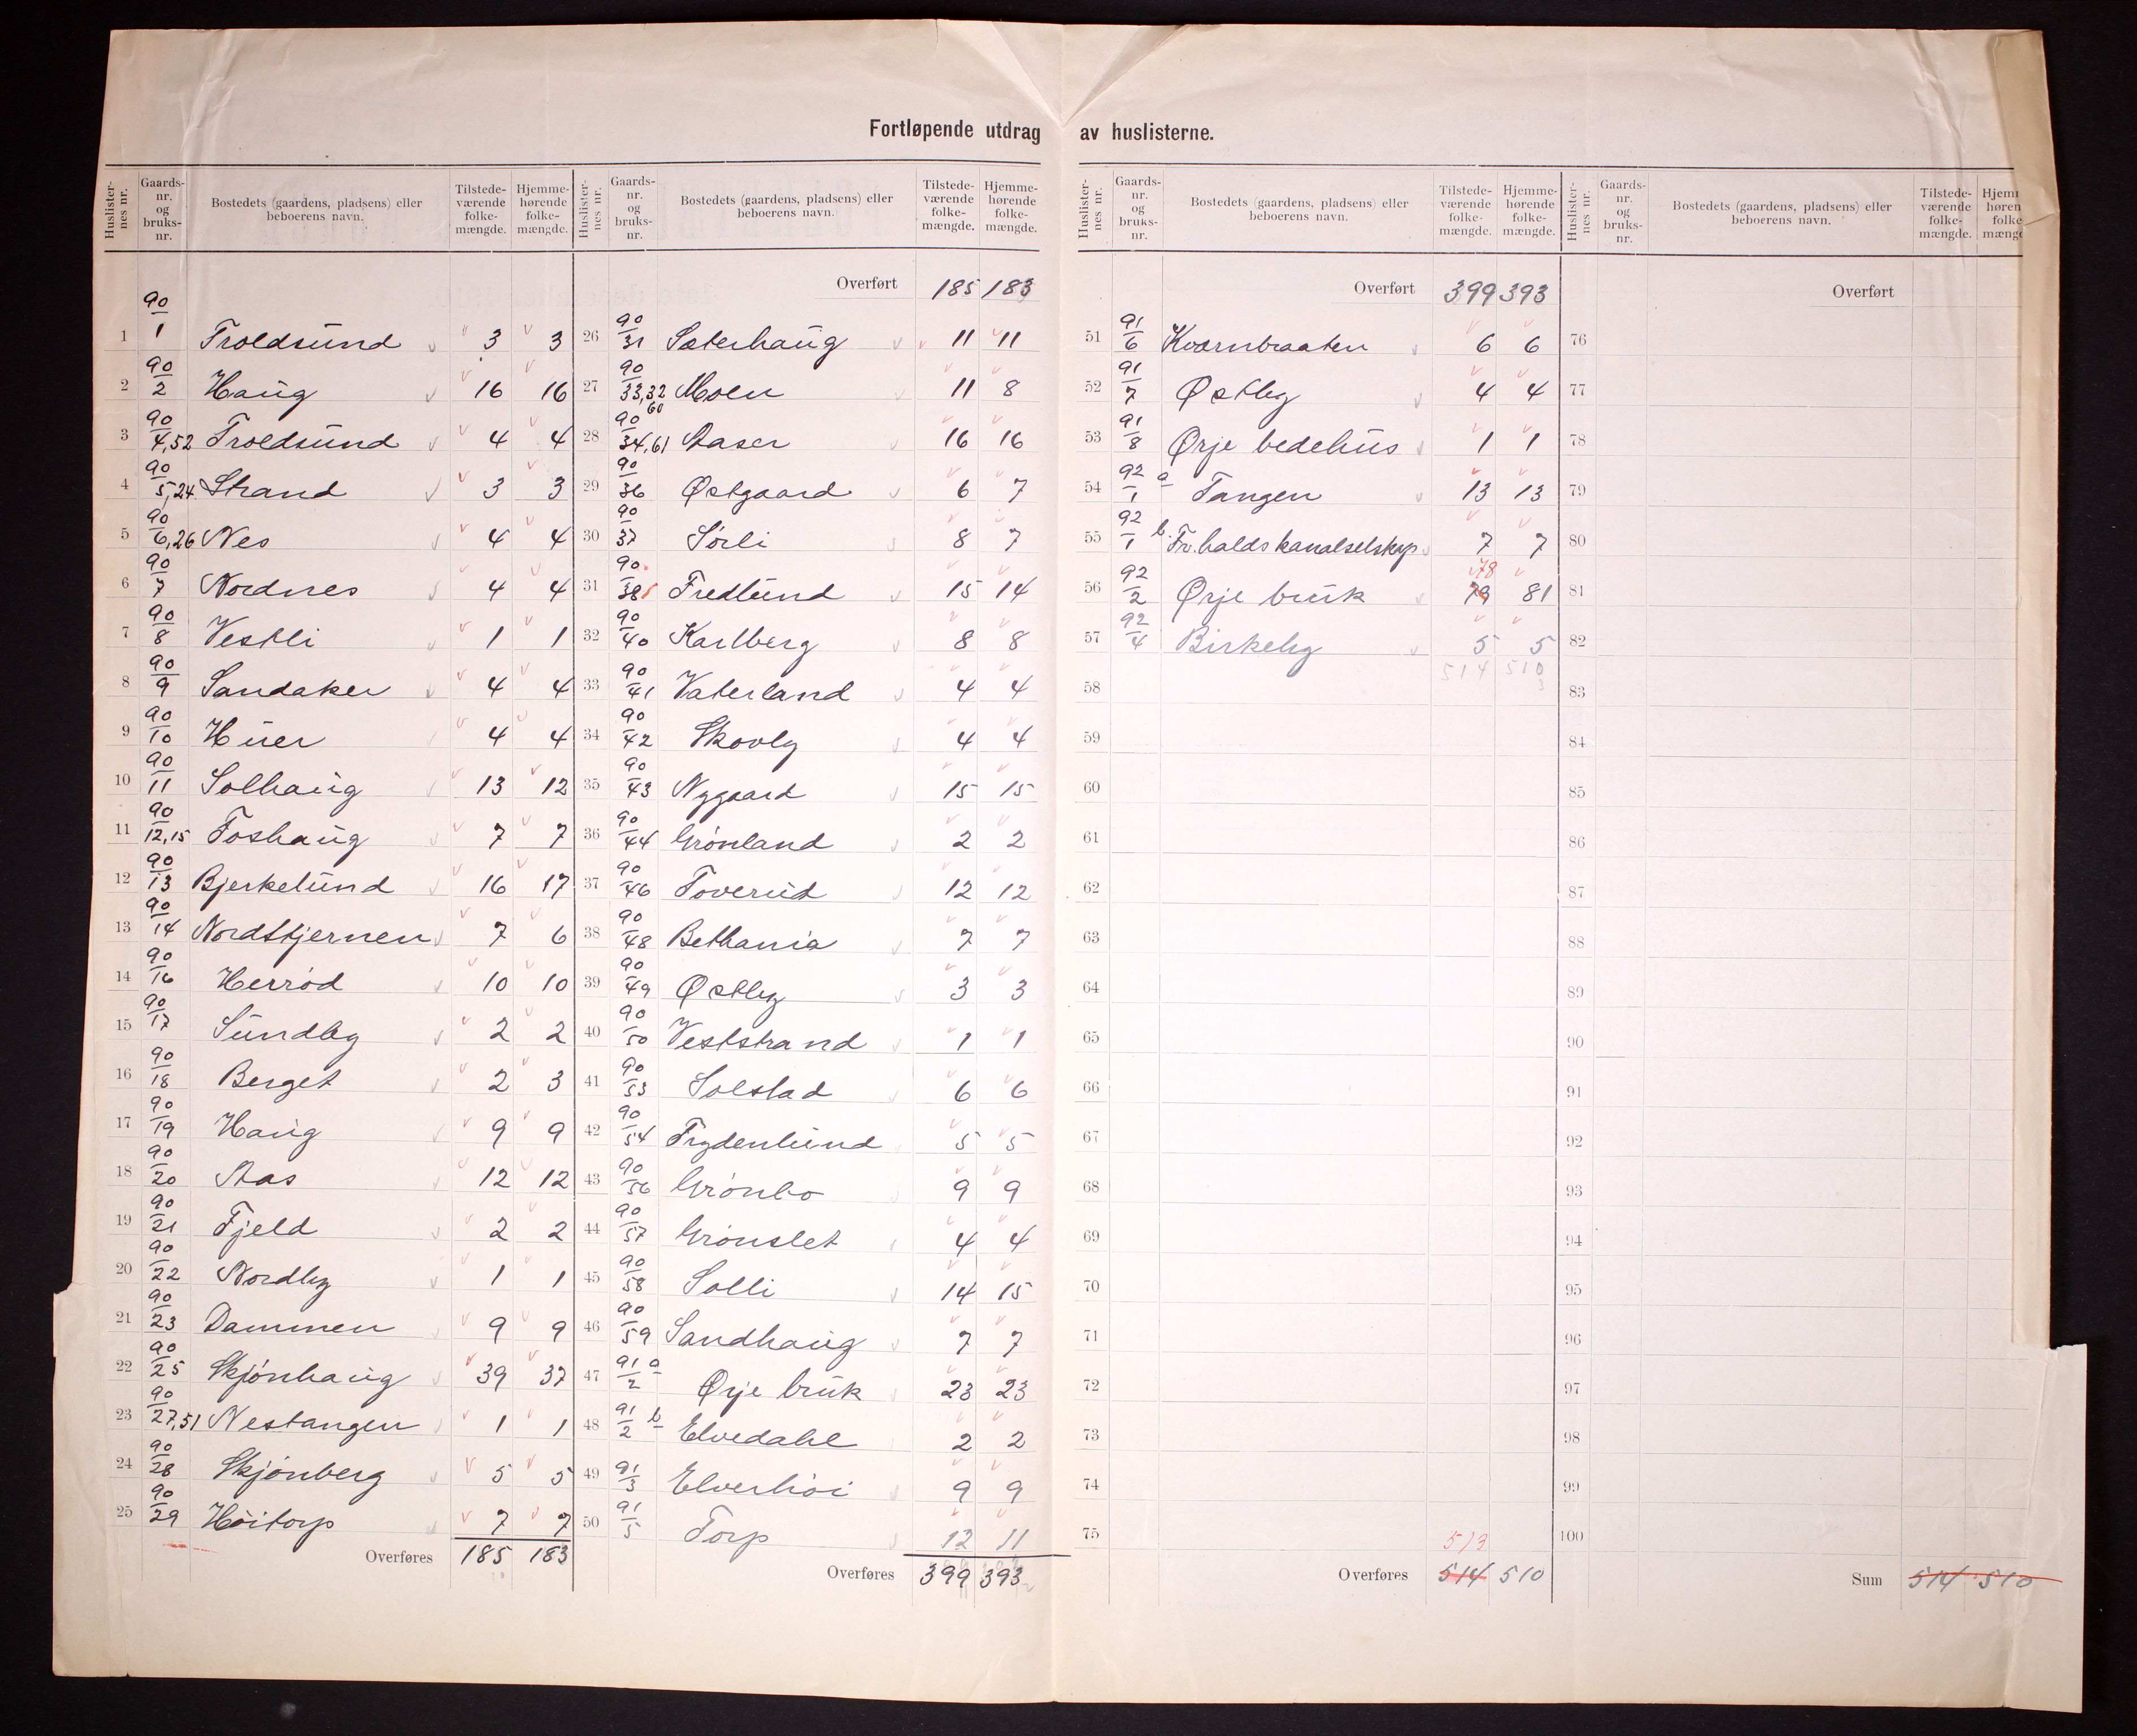 Fortløpende utdrag av huslisterne.
Huslisternes nr. Gaardsnr. og bruksnr. Bostedets (gaardens, pladsens) eller beboerens navn. Tilstedeværende folkemængde. Hjemmehørende folkemængde.
1 90/1 Troldsund 3 3
2 90/2 Haug 16 16
3 90/4,52 Troldsund 4 4
4 90/5,24 Strand 3 3
5 90/6,26 Nes 4 4
6 90/7 Nordnes 4 4
7 90/8 Vestli 1 1
8 90/9 Sandaker 4 4
9 90/10 Huer 4 4
10 90/11 Solhaug 13 12
11 90/12,15 Foshaug 7 7
12 90/13 Bjerkelund 16 17
13 90/14 Nordstjernen 7 6
14 90/16 Herrød 10 10
15 90/17 Sundby 2 2
16 90/18 Berget 2 3
17 90/19 Haug 9 9
18 90/20 Aas 12 12
19 90/21 Fjeld 2 2
20 90/22 Nordby 1 1
21 90/23 Dammen 9 9
22 90/25 Skjønhaug 39 37
23 90/27,51 Nestangen 1 1
24 90/28 Skjønberg 5 5
25 90/29 Høitorp 7 7
Overføres 185 183
Huslisternes nr. Gaardsnr. og bruksnr. Bostedets (gaardens, pladsens) eller beboerens navn. Tilstedeværende folkemængde. Hjemmehørende folkemængde.
Overført 185 183
26 90/31 Sæterhaug 11 11
27 90/33,32 60 Moen 11 8
28 90/34,61 Aaser 16 16
29 90/36 Østgaard 6 7
30 90/37 Sørli 8 7
31 90/38 Fredlund 15 14
32 90/40 Karlberg 8 8
33 90/41 Vaterland 4 4
34 90/42 Skovly 4 4
35 90/43 Nygaard 15 15
36 90/44 Grønland 2 2
37 90/46 Toverud 12 12
38 90/48 Bethania 7 7
39 90/49 Østby 3 3
40 90/50 Veststrand 1 1
41 90/53 Solstad 6 6
42 90/54 Frydenlund 5 5
43 90/56 Grønbo 9 9
44 90/57 Grønslet 4 4
45 90/58 Solli 14 15
46 90/59 Sandhaug 7 7
47 91/2 a Ørje bruk 23 23
48 91/2 b Elvedahl 2 2
49 91/3 Elverhøi 9 9
50 91/5 Torp 12 11
Overføres 399 393
Huslisternes nr. Gaardsnr. og bruksnr. Bostedets (gaardens, pladsens) eller beboerens navn. Tilstedeværende folkemængde. Hjemmehørende folkemængde.
Overført 399 393
51 91/6 Kværnbraaten 6 6
52 91/7 Østby 4 4
53 91/8 Ørje bedehus 1 1
54 92/1 a Tangen 13 13
55 92/1 b Fr.halds kanalselskap 7 7
78
56 92/2 Ørje bruk 79 81
57 92/4 Birkeby 5 5
514 510
58
59
60
61
62
63
64
65
66
67
68
69
70
71
72
73
74
75
513
Overføres 514 510
Huslisternes nr. Gaardsnr. og bruksnr. Bostedets (gaardens, pladsens) eller beboerens navn. Tilstedeværende folkemængde. Hjem høren folke mængd
Overført
76
77
78
79
80
81
82
83
84
85
86
87
88
89
90
91
92
93
94
95
96
97
98
99
100
Sum 514 510